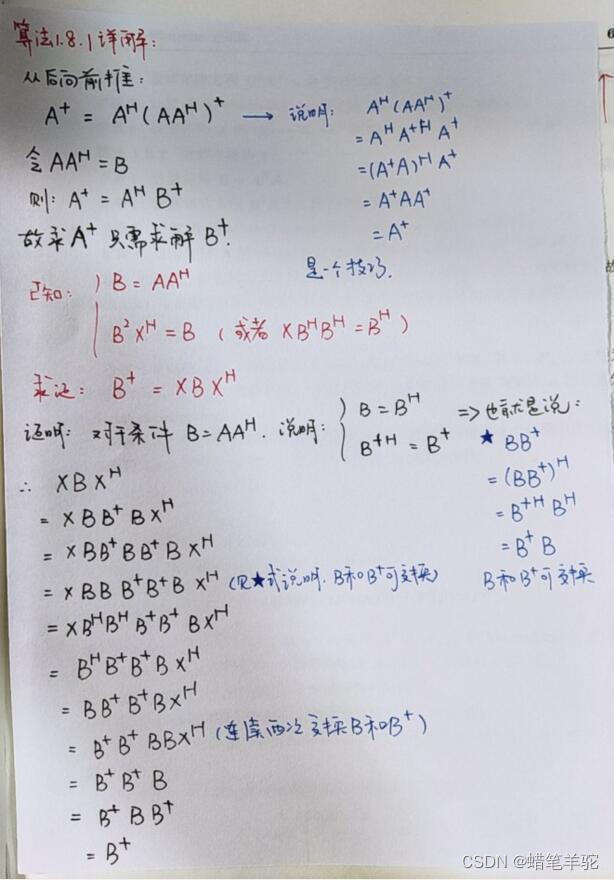 算法1.8.1详解:
从后向前推:
A⁺ = Aᴴ(AAᴴ)⁺ → 说明: Aᴴ(AAᴴ)⁺
= AᴴA⁺ᴴA⁺
= (A⁺A)ᴴA⁺
= A⁺AA⁺
= A⁺
是一个技巧.
令AAᴴ = B
则: A⁺ = AᴴB⁺
故求A⁺只需求解B⁺.
已知: B = AAᴴ
B²Xᴴ = B (或者 XBᴴBᴴ = Bᴴ)
求证: B⁺ = XBXᴴ
证明: 对于条件 B = AAᴴ. 说明: { B = Bᴴ
B⁺ᴴ = B⁺
=> 也就是说:
★ BB⁺
= (BB⁺)ᴴ
= B⁺ᴴBᴴ
= B⁺B
B和B⁺可交换
∴ XBXᴴ
= XBB⁺BXᴴ
= XBB⁺BB⁺BXᴴ
= XBBB⁺B⁺BXᴴ (由★式说明. B和B⁺可交换)
= XBᴴBᴴB⁺B⁺BXᴴ
= BᴴB⁺B⁺BXᴴ
= BB⁺B⁺BXᴴ
= B⁺B⁺BBXᴴ (连续两次交换B和B⁺)
= B⁺B⁺B
= B⁺BB⁺
= B⁺
CSDN @蜡笔羊驼